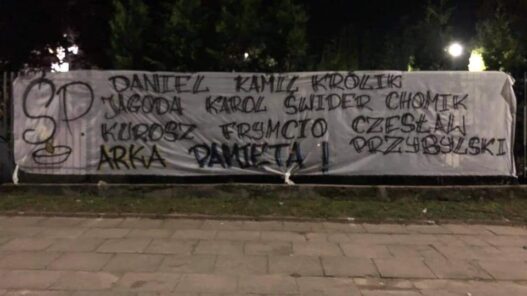 ŚP DANIEL KAMIL KRÓLIK
JAGODA KAROL ŚWIDER CHOMIK
KUROSZ FRYMCIO CZESŁAW
PRZYBYLSKI
ARKA PAMIĘTA !